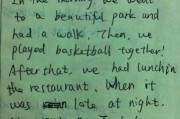 In the morning, we went
to a beautiful park and
had a walk. Then, we
played basketball together!
After that, we had lunch in
the restaurant. When it
was late at night.